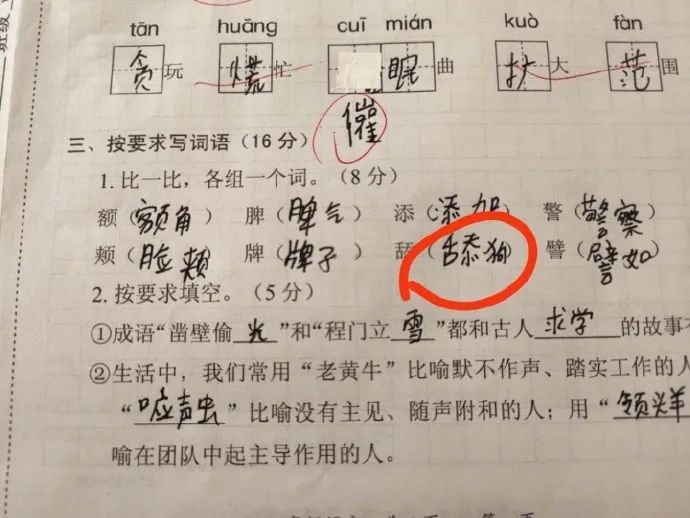 班级
tān huāng cuī mián kuò fàn
贪玩 慌忙 眠曲 扩大 范围
催
三、按要求写词语(16分)
1.比一比,各组一个词。(8分)
额(额角) 脾(脾气) 添(添加) 警(警察)
颊(脸颊) 牌(牌子) 舔(舔狗) 譬(譬如)
2.按要求填空。(5分)
①成语“凿壁偷光”和“程门立雪”都和古人求学的故事有
②生活中,我们常用“老黄牛”比喻默不作声、踏实工作的人
“应声虫”比喻没有主见、随声附和的人;用“领头羊
喻在团队中起主导作用的人。